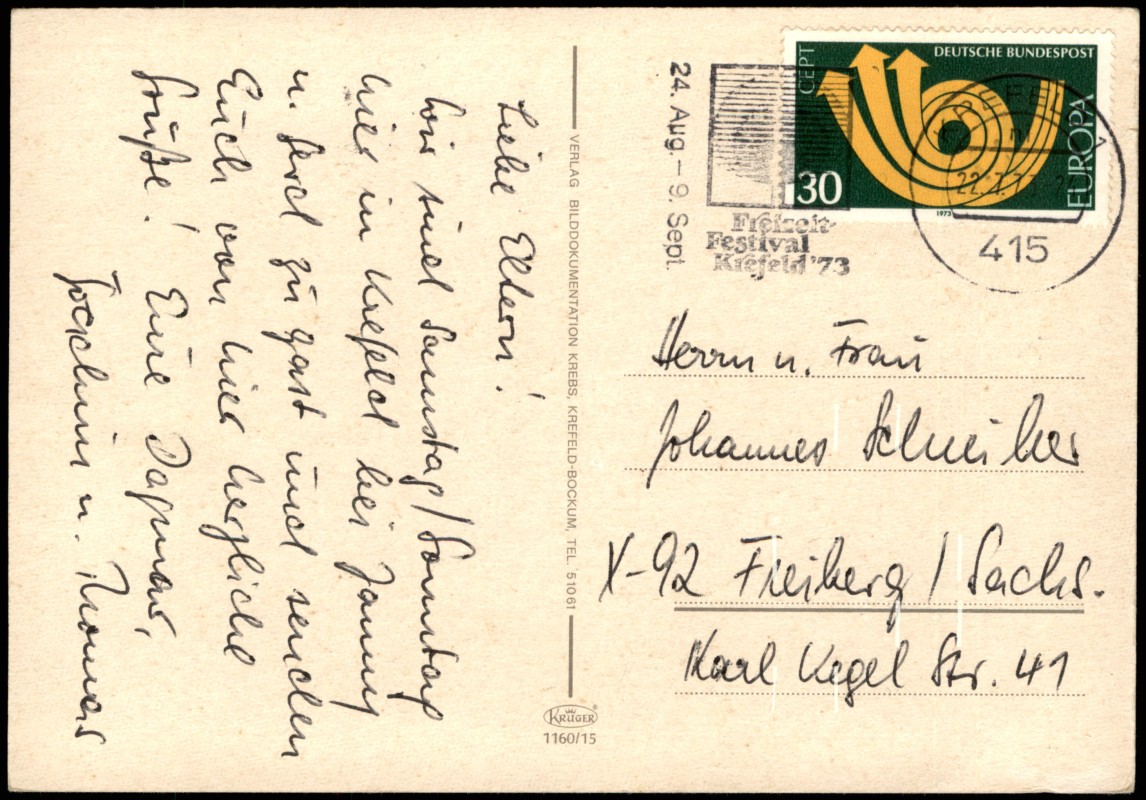 Liebe Eltern!
Wir sind Samstag/Sonntag
hier in Krefeld bei Janny
u. Gerd zu Gast und senden
Euch von hier herzliche
Grüße! Eure Dagmar,
Jochim u. Thomas
VERLAG BILDDOKUMENTATION KREBS, KREFELD-BOCKUM, TEL. 51061
KRÜGER
1160/15
24. Aug. – 9. Sept.
Freizeit-
Festival
Krefeld '73
CEPT
DEUTSCHE BUNDESPOST
EUROPA
30
1973
KREFELD 1
22.7.7
415
Herrn u. Frau
Johannes Schreiber
X-92 Freiberg / Sachs.
Karl Kegel Str. 41